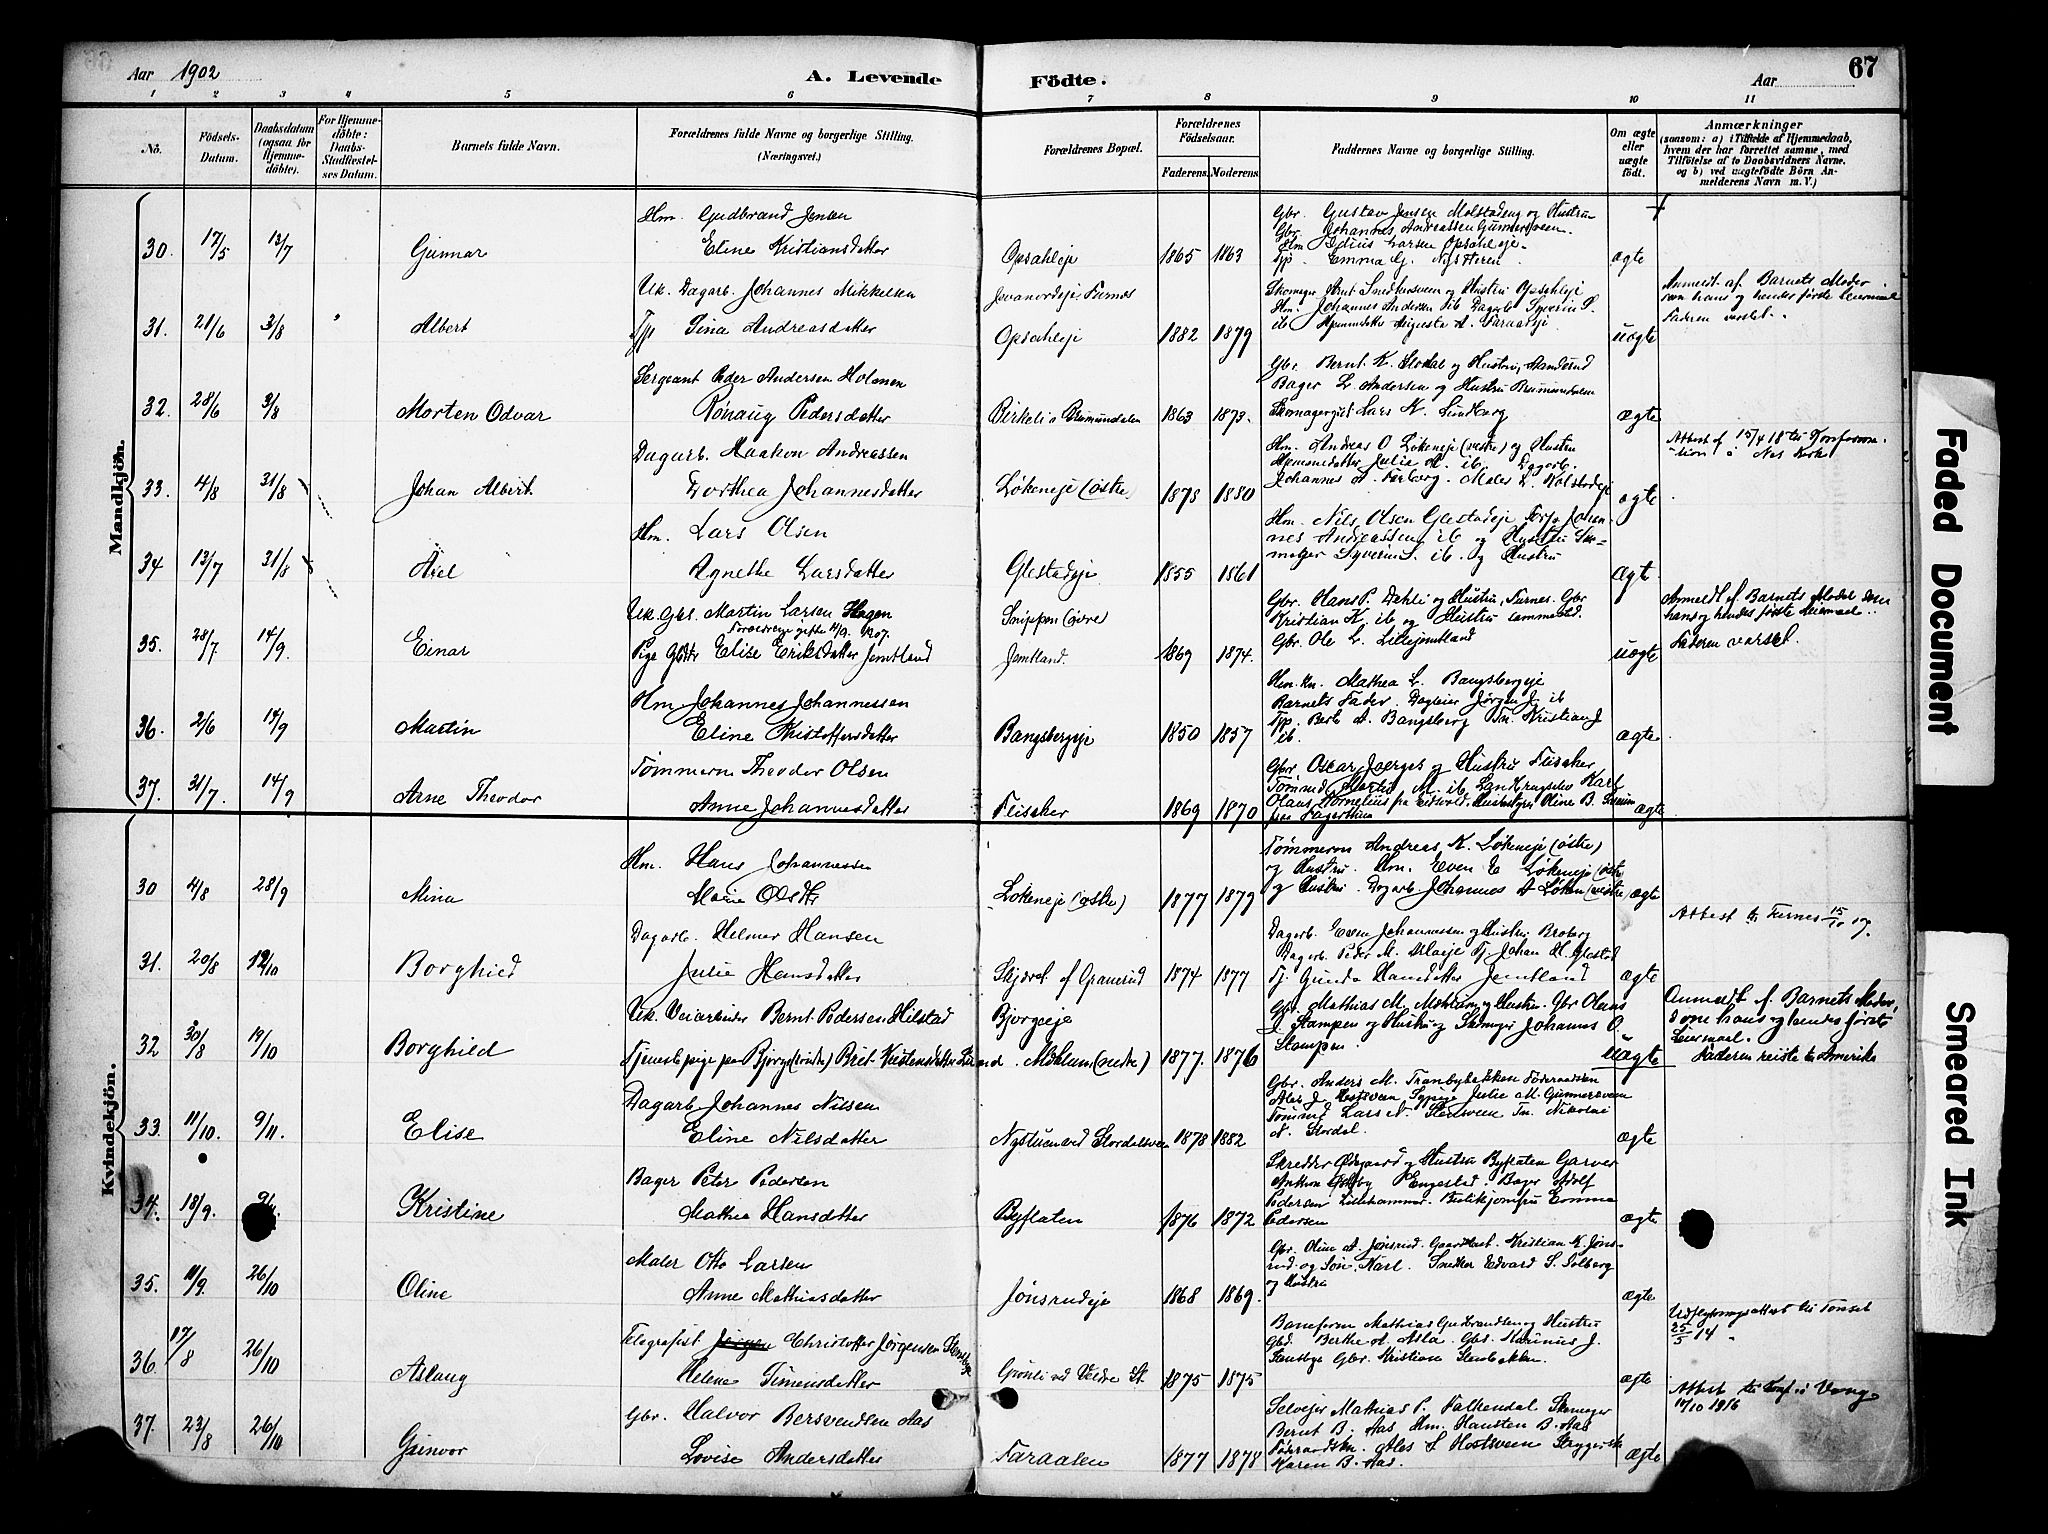 Aar 1902
A. Levende Födte.
Aar
67
1 2 3 4 5 6 7 8 9 10 11
No.
Födsels-Datum.
Daabsdatum (ogsaa for Hjemme-döbte).
For Hjemme-döbte: Daabs-Stadfæstel-ses Datum.
Barnets fulde Navn.
Forældrenes fulde Navne og borgerlige Stilling. (Næringsvei.)
Forældrenes Bopæl.
Forældrenes Födselsaar.
Faderens. Moderens
Faddernes Navne og borgerlige Stilling.
Om ægte eller uægte födt.
Anmærkninger
(saasom: a) i Tilfælde af Hjemmedaab, hvem der har forrettet samme, med Tilföielse af to Daabsvidners Navne. og b) ved uægtefödte Börn An-melderens Navn m. V.)
Mandkjön.
30. 17/5 13/7 Gunnar
Hm. Gudbrand Jensen
Eline Kristiansdatter
Opsahleje 1865 1863
Gbr. Gustav Jensen Molstadeng og Hustru
Gbr. Johannes Andreassen Gunnersveen.
Hm Julius Larsen Opsahleje.
Tjp. Emma G. Nysteren
ægte
31. 21/6 3/8 Albert
Uk. Dagarb. Johannes Mikkelsen
Tjp Tina Andreasdatter
Furnes
Opsahleje 1882 1879
og Hustru Opsahleje
Hm. Johannes Andersen ib Dagarb Syverin S.
ib Augusta A.
uægte
Anmeldt af Barnets Moder
som hans og hendes første Leiermaal
Faderen varslet.
32. 28/6 3/8 Morten Odvar
Sergeant Peder Andersen Holmen
Rønaug Pedersdatter
Birkeli i Brumunddalen 1863 1873.
Gbr. Bernt K. og Hustru,
Bager L. Andersen og Hustru Brumunddalen
Lars N. Lundberg
ægte
33. 4/8 31/8 Johan Albert
Dagarb. Haakon Andreassen
Dorthea Johannesdatter
Løkeneje (østre) 1873 1880
Hm. Andreas O. Løkeneje (vestre) og Hustru
Hjemmedatter Julie A. ib. Dagarb.
Johannes A. Farberg. Maler L. Kolstadeje
ægte
Attest af 15/4 18 til Konfirma-
tion i Nes Kirke
34 13/7 31/8 Axel
Hm. Lars Olsen
Agnethe Larsdatter
Glestadeje 1855 1861
Hm. Nils Olsen Glestadeje
nes Andreassen ib og Hustru Sko-
mager Syverin S. ib. og Hustru
Ægte
35. 28/7 14/9. Einar
Uk. Gbs. Martin Larsen Hagen
Forældrene gifte 1907.
Pige Gbdtr Elise Eriksdatter Jemtland
Snippen (øvre)
Jemtland. 1869 1874.
Gbr. Hans P. Dahli og Hustru, Furnes. Gbr
Kristian K. ib og Hustru
Gbr. Ole L. Lillejemtland
uægte
Anmeldt af Barnets Moder som
hans og hendes første Leiermaal.
Faderen varslet.
36. 2/6 14/9 Martin
Hm Johannes Johannessen
Eline Kristoffersdatter
Bangsbergeje 1850 1857
Hm. kn. Mathea L. Bangsbergeje
Barnets Fader. Jørgen J. ib
Tjp. Berte A. Bangsberg Kristian J.
ib.
ægte
37. 31/7. 14/9 Arne Theodor
Tømmerm Theodor Olsen
Anne Johannesdatter
Flisaker 1869 1870
Gbr. Oscar Joerges og Hustru Flisaker
Martin M. ib Karl
Olaus Kornelius fra Eidsvold. Oline B.
fra Fagerthun
ægte
Kvindekjön.
30 4/8 28/9 Mina
Hm. Hans Johannessen
Marie Olsdtr
Løkeneje (østre) 1877 1879
Tømmerm Andreas K. Løkeneje (østre)
og Hustru. Hm. Even E Løkeneje (østre
og Hustru. Dagarb Johannes A Løken (vestre)
ægte
31. 20/8 12/10 Borghild
Dagarb. Helmer Hansen
Julie Hansdatter
Skjæret af Granerud 1874 1877
Dagarb. Even Johannessen og Hustru Broberg
Dagarb. Peder M. Tj. Johan H. Glestad
Tj. Gunda Hansdatter Jemtland
ægte
Attest til Furnes 15/10 17.
32 30/8 19/10 Borghild
Uk. Veiarbeider Bernt Pedersen Hilstad
Tjenestepige paa Bjørge (vindre) Kristensdatter
Bjørgeje
Mæhlum (nedre) 1877. 1876
Gbr. Mathias M. Mæhlum og Hustru. Gbr Olaus
J. Stampen og Hustru og Skomager Johannes O.
Stampen
uægte
Anmeldt af Barnets Moder,
som hans og hendes første
Leiermaal.
Faderen reiste til Amerika
33. 11/10. 9/11. Elise
Dagarb Johannes Nilsen
Eline Nilsdatter
Nystuen ved Stordalsveen 1878 1882
Gbr. Anders M. Tranbybakken Føderaadsen
Ales J. Hostveen Sypige Julie M. Gunnersveen
Tømmd Lars N. Stensveen Nikolai
N. Stordal.
ægte
34. 18/9. 9/11. Kristine
Bager Peter Pedersen
Mathea Hansdatter
Byflaten 1876 1872
Skredder Ødegaard og Hustru Byflaten Garver
Anthon Engestad. Bager Adolf
Pedersen Lillehammer. Butikjomfru Emma
Pedersen
ægte
35. 11/9. 26/10 Oline
Maler Otto Larsen
Anne Mathiasdatter
Jønsrudeje 1868 1869.
Gbr. Oline A. Jønsrud. Kristian K. Jøns-
rud og Søn Karl. Snedker Edvard S. Solberg
og Hustru
ægte
36. 17/8 26/10 Aslaug
Telegrafist Christoffer Jørgensen
Helene Simensdatter
Grønli ved Veldre St. 1875 1875
Baneform Mathias Gudbrandsen og Hustru
Gbd. Berthe A. Asla Gbs. Marinus J.
Gbr. Kristian Stenbakken.
ægte
Udflytningsattest til Tønset
25/5 14
37. 23/8 26/10 Gunvor
Gbr. Halvor Bersvendsen Aas
Lovise Andersdatter
Faraasen 1877 1878
Selvejer Mathias P. Falkendal Skomager
Bernt B. Aas Hm. Hansten B. Aas
Føderaadskn. Ales J. Hostveen Strygerske
Karen B. Aas.
ægte
Attest til Konf i Vang
10/10 1916
Faded Document
Smeared Ink